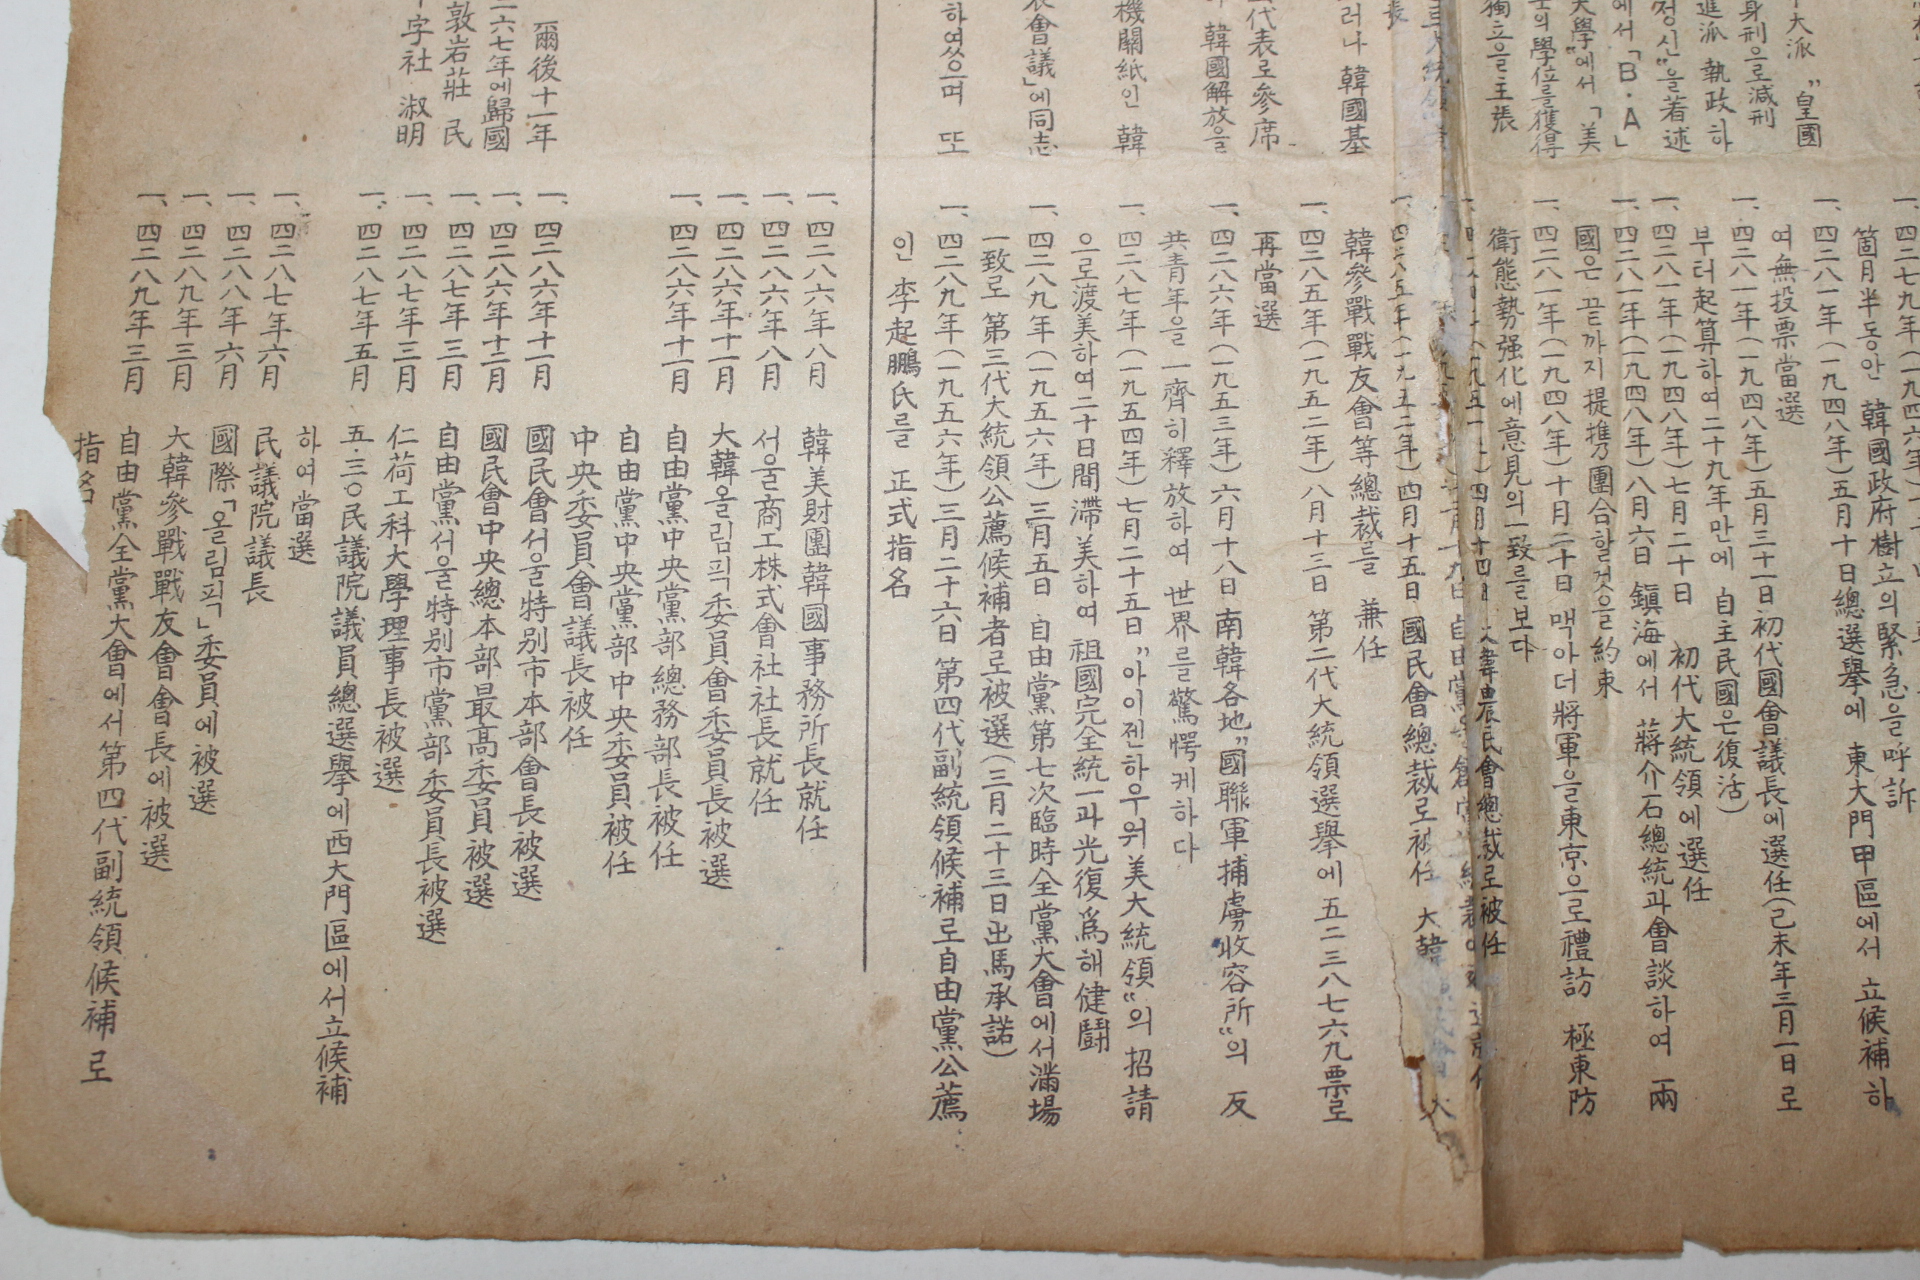 大派 "皇國
身刑으로減刑
進派 執政하
정신"을著述
에서「B·A」
大學"에서「美
의學位를獲得
獨立을主張
러나 韓國基
代表로參席
韓國解放을
機關紙인 韓
表會議」에同志
하였으며 또
爾後十一年
二六七年에歸國
敦岩莊 民
字社 淑明
箇月半동안 韓國政府樹立의緊急을呼訴
一、四二八一年(一九四八年)五月十日總選擧에 東大門甲區에서 立候補하
여無投票當選
一、四二八一年(一九四八年)五月三十一日初代國會議長에選任(己未年三月一日로
부터起算하여二十九年만에 自主民國은復活)
一、四二八一年(一九四八年)七月二十日 初代大統領에選任
一、四二八一年(一九四八年)八月六日 鎭海에서 蔣介石總統과會談하여 兩
國은 끝까지提携團合할것을約束
一、四二八一年(一九四八年)十月二十日 맥아더將軍을東京으로禮訪 極東防
衛態勢强化에意見의一致를보다
四月十四日 大韓農民會總裁로被任
一、四二八五年(一九五二年)四月十五日 國民會總裁로被任 大韓
韓參戰戰友會等總裁를 兼任
一、四二八五年(一九五二年)八月十三日 第二代大統領選擧에 五二三八七六九票로
再當選
一、四二八六年(一九五三年)六月十八日 南韓各地"國聯軍捕虜收容所"의 反
共青年을 一齊히釋放하여 世界를驚愕케하다
一、四二八七年(一九五四年)七月二十五日"아이젠하우워美大統領"의 招請
으로渡美하여二十日間滯美하여 祖國完全統一과光復爲해健鬪
一、四二八九年(一九五六年)三月五日 自由黨第七次臨時全黨大會에서滿場
一致로 第三代大統領公薦候補者로被選(三月二十三日出馬承諾)
一、四二八九年(一九五六年)三月二十六日 第四代副統領候補로自由黨公薦
인 李起鵬氏를 正式指名
一、四二八六年八月 韓美財團韓國事務所長就任
一、四二八六年八月 서울商工株式會社社長就任
一、四二八六年十一月 大韓올림픽委員會委員長被選
一、四二八六年十一月 自由黨中央黨部總務部長被任
自由黨中央黨部中央委員被任
中央委員會議長被任
一、四二八六年十一月 國民會서울特別市本部會長被選
一、四二八六年十二月 國民會中央總本部最高委員被選
一、四二八七年三月 自由黨서울特別市黨部委員長被選
一、四二八七年三月 仁荷工科大學理事長被選
一、四二八七年五月 五·三〇民議院議員總選擧에西大門區에서立候補
하여當選
一、四二八七年六月 民議院議長
一、四二八八年六月 國際「올림픽」委員에被選
一、四二八九年三月 大韓參戰戰友會會長에被選
一、四二八九年三月 自由黨全黨大會에서第四代副統領候補로
指名